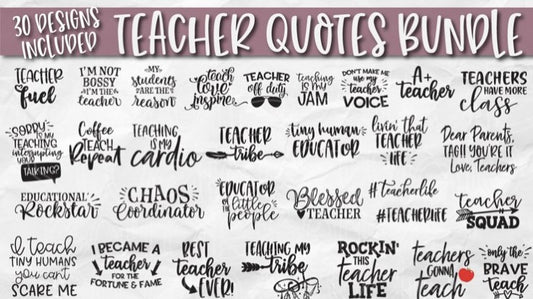 30 DESIGNS
INCLUDED
TEACHER QUOTES BUNDLE
TEACHER
fuel
I'M NOT
BOSSY
#I'M THE
teacher
MY
students
ARE THE
reason
teach
Love
inspire
TEACHER
off duty
teaching
IS MY
JAM
DON'T MAKE ME
use my
teacher
VOICE
A+
teacher
TEACHERS
HAVE MORE
class
SORRY
IS MY
TEACHING
interrupting
your
TALKING?
Coffee
TEACH
Repeat
TEACHING
IS MY
cardio
TEACHER
tribe
tiny human
EDUCATOR
livin' that
TEACHER
LIFE
Dear Parents,
TAG!! YOU'RE IT
Love, Teachers
EDUCATIONAL
Rockstar
CHAOS
Coordinator
EDUCATOR
OF THE
little
people
Blessed
TEACHER
#teacherlife
#TEACHERlIFE
teacher
SQUAD
I teach
TINY HUMANS
you can't
SCARE ME
I BECAME A
teacher
FOR THE
FORTUNE & FAME
BEST
teacher
EVER!
TEACHING MY
tribe
ROCKIN'
THIS
teacher
LIFE
teachers
GONNA
teach
only the
BRAVE
teach